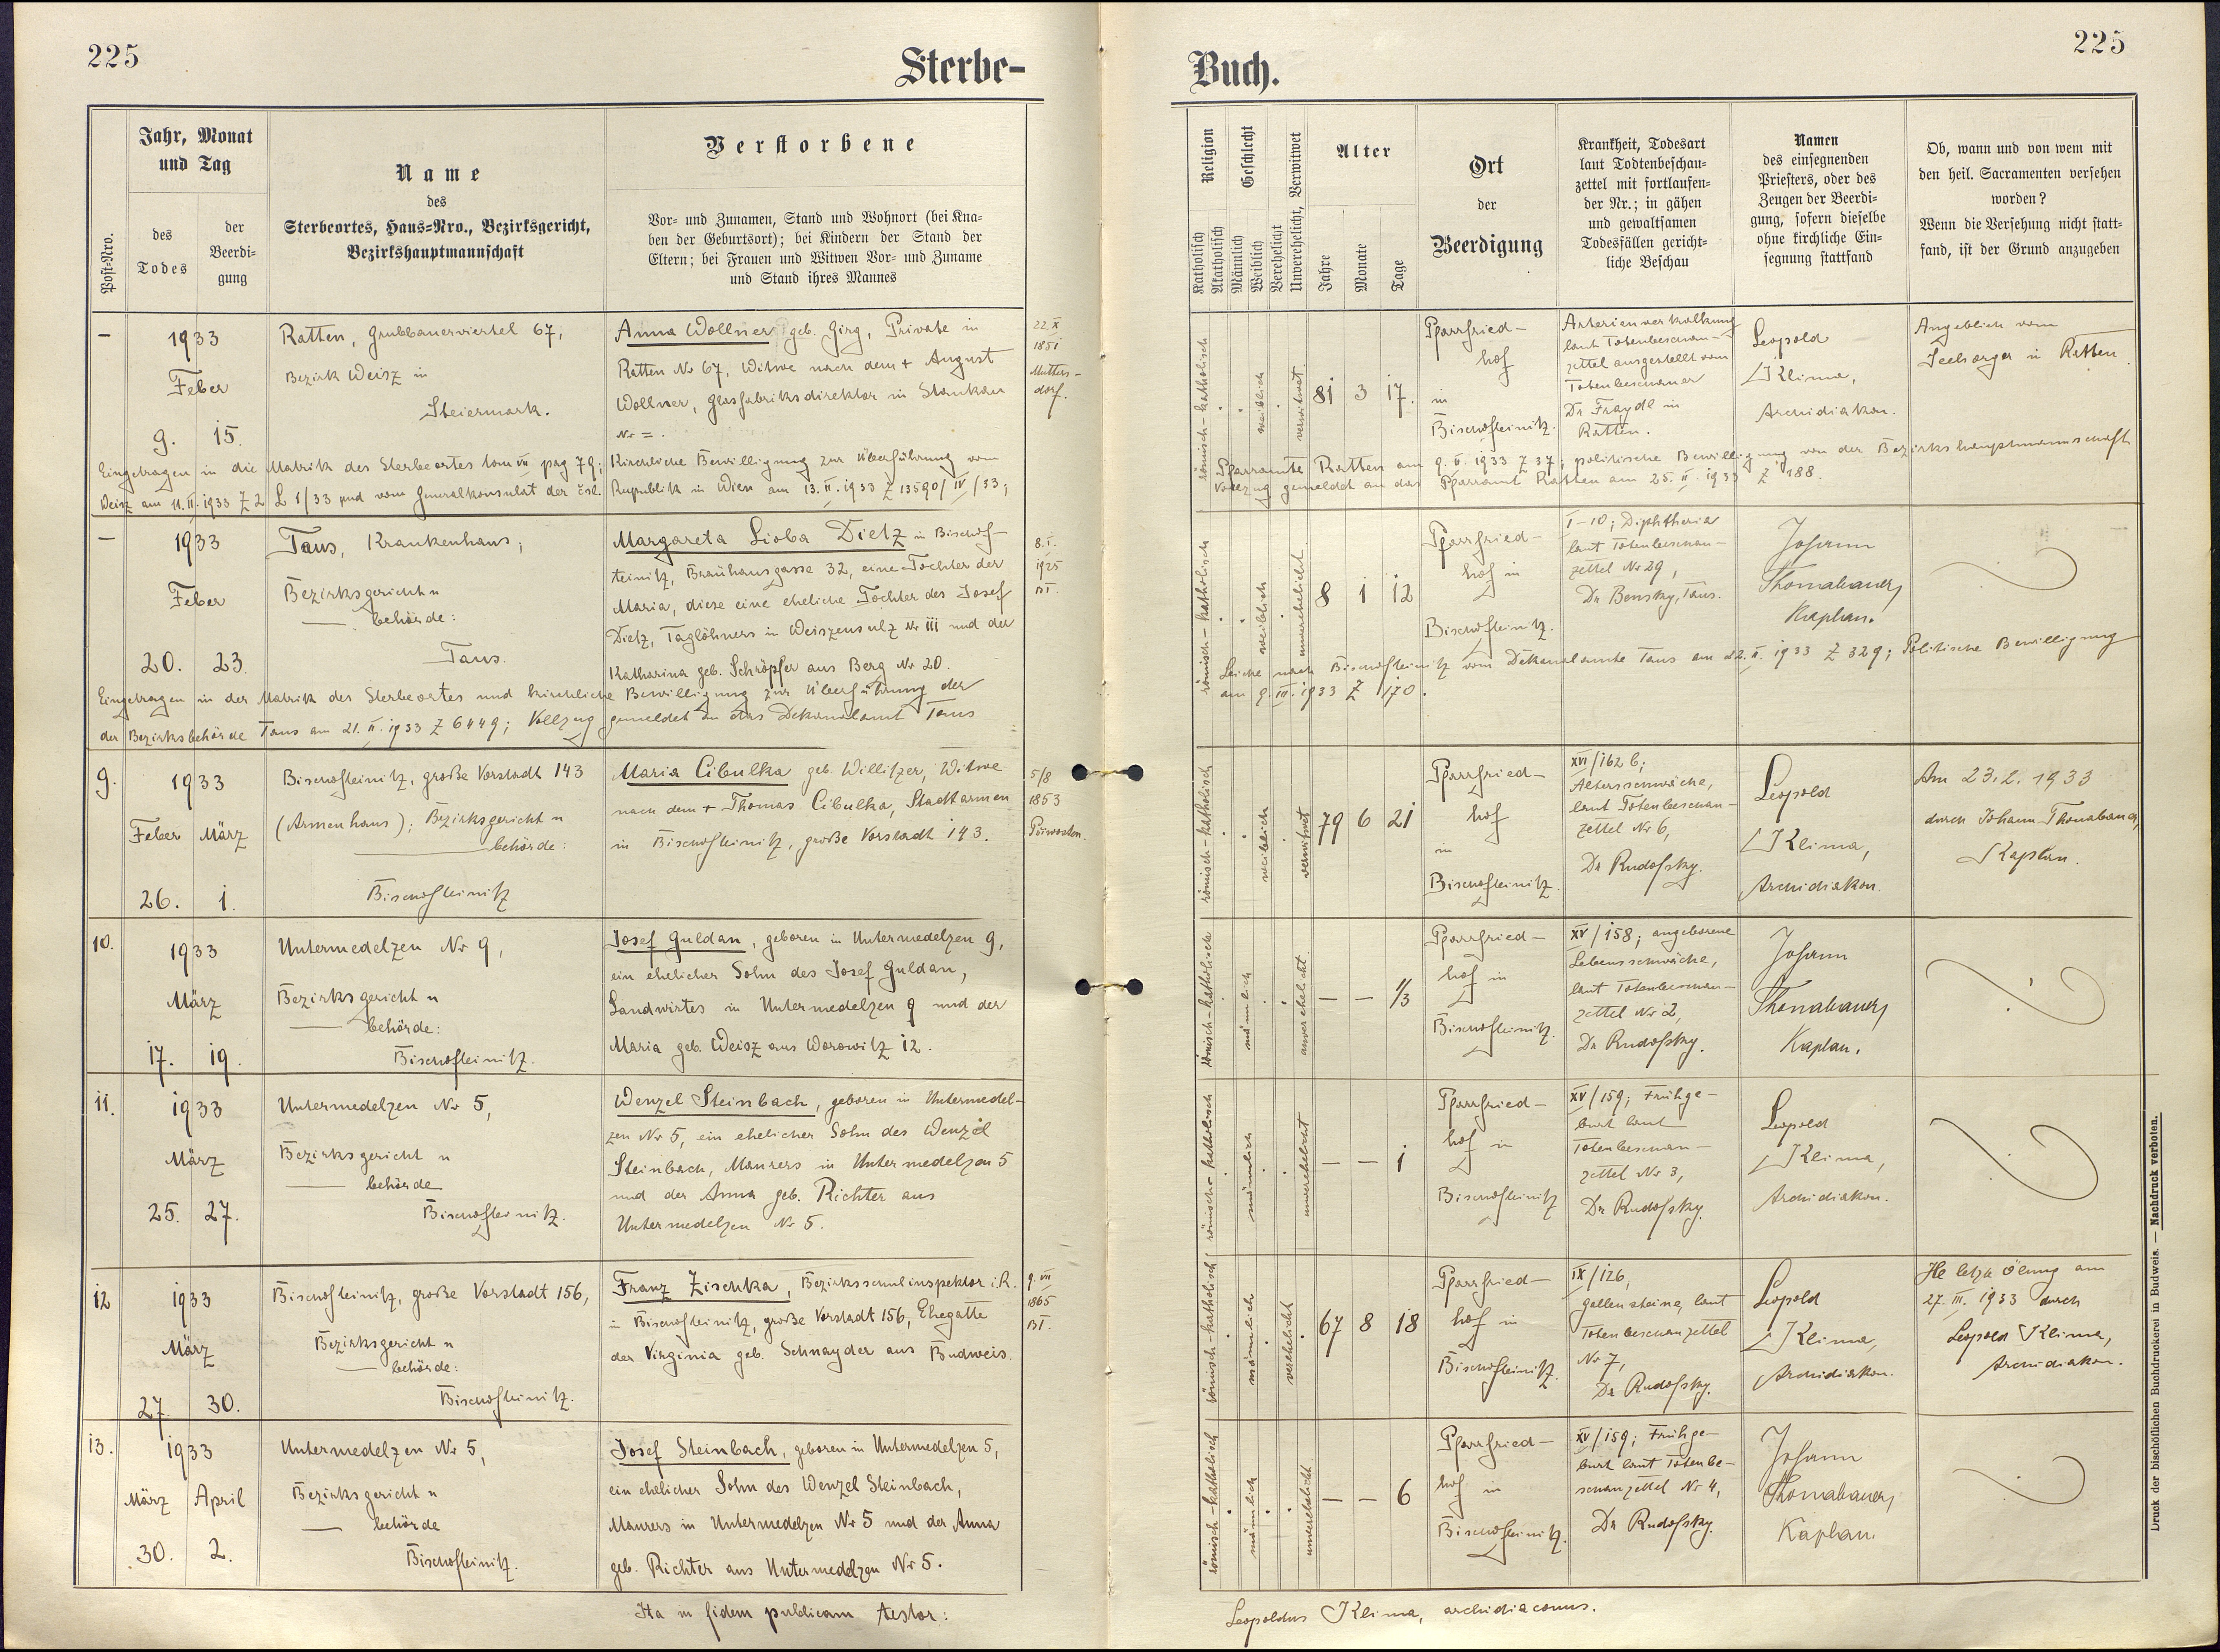 225
Sterbe-
Post-Nro.
Jahr, Monat
und Tag
des
Todes
der
Beerdi-
gung
Name
des
Sterbeortes, Haus-Nro., Bezirksgericht,
Bezirkshauptmannschaft
Verstorbene
Vor- und Zunamen, Stand und Wohnort (bei Kna-
ben der Geburtsort); bei Kindern der Stand der
Eltern; bei Frauen und Witwen Vor- und Zuname
und Stand ihres Mannes
–
1933
Feber
9. 15.
Ratten, Grubbauerviertel 67,
Bezirk Weisz in
Steiermark.
Anna Wollner geb. Girg, Private in
Ratten Nr 67, Witwe nach dem + August
Wollner, Glasfabriksdirektor in Stankau
Nr = .
22.X
1851
Mutters-
dorf.
Eingetragen in die Matrik des Sterbeortes tom VII pag 79; Kirchliche Bewilligung zur Überführung vom
Weisz am 11.II.1933 Z 2 L 1/33 und vom Generalkonsulat der čsl. Republik in Wien am 13.II.1933 Z 13590/IV/33;
–
1933
Feber
20. 23.
Taus, Krankenhaus;
Bezirksgericht u
— behörde:
Taus.
Margareta Lioba Dietz in Bischof-
teinitz, Bräuhausgasse 32, eine Tochter der
Maria, diese eine eheliche Tochter des Josef
Dietz, Taglöhners in Weiszensulz Nr 111 und der
Katharina geb. Schröpfer aus Berg Nr 20.
8.I.
1925
BT.
Eingetragen in der Matrik des Sterbeortes und kirchliche Bewilligung zur Überführung der
der Bezirksbehörde Taus am 21.II.1933 Z 6449; Vollzug gemeldet an das Dekanalamt Taus
9.
1933
Feber März
26. 1.
Bischofteinitz, große Vorstadt 143
(Armenhaus); Bezirksgericht u
— behörde:
Bischofteinitz
Maria Cibulka geb. Willitzer, Witwe
nach dem + Thomas Cibulka, Stadtarmen
in Bischofteinitz, große Vorstadt 143.
5/8
1853
10.
1933
März
17. 19.
Untermedelzen Nr 9,
Bezirksgericht u
— behörde:
Bischofteinitz.
Josef Guldan, geboren in Untermedelzen 9,
ein ehelicher Sohn des Josef Guldan,
Landwirtes in Untermedelzen 9 und der
Maria geb. Weisz aus Worowitz 12.
11.
1933
März
25. 27.
Untermedelzen Nr 5,
Bezirksgericht u
— behörde
Bischofteinitz.
Wenzel Steinbach, geboren in Untermedel-
zen Nr 5, ein ehelicher Sohn des Wenzel
Steinbach, Maurers in Untermedelzen 5
und der Anna geb. Richter aus
Untermedelzen Nr 5.
12
1933
März
27. 30.
Bischofteinitz, große Vorstadt 156,
Bezirksgericht u
— behörde:
Bischofteinitz.
Franz Zischka, Bezirksschulinspektor i.R.
in Bischofteinitz, große Vorstadt 156, Ehegatte
der Virginia geb. Schnayder aus Budweis.
9.VII
1865
BT.
13.
1933
März April
30. 2.
Untermedelzen Nr 5,
Bezirksgericht u
— behörde
Bischofteinitz.
Josef Steinbach, geboren in Untermedelzen 5,
ein ehelicher Sohn des Wenzel Steinbach,
Maurers in Untermedelzen Nr 5 und der Anna
geb. Richter aus Untermedelzen Nr 5.
Ita in fidem publicam testor:
225
Buch.
Religion
Katholisch
Akatholisch
Geschlecht
Männlich
Weiblich
Verehelicht
Unverehelicht, Verwitwet
Alter
Jahre
Monate
Tage
Ort
der
Beerdigung
Krankheit, Todesart
laut Todtenbeschau-
zettel mit fortlaufen-
der Nr.; in gähen
und gewaltsamen
Todesfällen gericht-
liche Beschau
Namen
des einsegnenden
Priesters, oder des
Zeugen der Beerdi-
gung, sofern dieselbe
ohne kirchliche Ein-
segnung stattfand
Ob, wann und von wem mit
den heil. Sacramenten versehen
worden?
Wenn die Versehung nicht statt-
fand, ist der Grund anzugeben
römisch-katholisch
weiblich
verwitwet
81 3 17.
Pfarrfried-
hof
in
Bischofteinitz.
Arterienverkalkung
laut Totenbeschau-
zettel ausgestellt vom
Totenbeschauer
Dr Fraydl in
Ratten.
Leopold
Klima,
Archidiakon.
Angeblich vom
Seelsorger in Ratten
Pfarramte Ratten am 9.II.1933 Z 37; politische Bewilligung von der Bezirkshauptmannschaft
Vollzug gemeldet an das Pfarramt Ratten am 25.II.1933 Z 188.
römisch-katholisch
weiblich
unverehelicht
8 1 12
Pfarrfried-
hof in
Bischofteinitz.
I-10; Diphtheria
laut Totenbeschau-
zettel Nr 29,
Dr Bensky, Taus.
Johann
Thomabauer,
Kaplan.
Leiche nach Bischofteinitz vom Dekanalamte Taus am 22.II.1933 Z 329; Politische Bewilligung
am 9.III.1933 Z 170.
römisch-katholisch
weiblich
verwitwet
79 6 21
Pfarrfried-
hof
in
Bischofteinitz.
XVI/162 b;
Altersschwäche,
laut Totenbeschau-
zettel Nr 6,
Dr Rudofsky.
Leopold
Klima,
Archidiakon.
Am 23.2.1933
durch Johann Thomabauer,
Kaplan.
römisch-katholisch
männlich
unverehelicht
– – 1/3
Pfarrfried-
hof in
Bischofteinitz.
XV/158; angeborene
Lebensschwäche,
laut Totenbeschau-
zettel Nr 2,
Dr Rudofsky.
Johann
Thomabauer,
Kaplan.
römisch-katholisch
männlich
unverehelicht
– – 1
Pfarrfried-
hof in
Bischofteinitz
XV/159; Frühge-
burt laut
Totenbeschau-
zettel Nr 3,
Dr Rudofsky.
Leopold
Klima,
Archidiakon.
römisch-katholisch
männlich
verehelicht
67 8 18
Pfarrfried-
hof in
Bischofteinitz.
IX/126,
Gallensteine, laut
Totenbeschauzettel
Nr 7,
Dr Rudofsky.
Leopold
Klima,
Archidiakon.
Hl letzte Ölung am
27.III.1933 durch
Leopold Klima,
Archidiakon.
römisch-katholisch
männlich
unverehelicht
– – 6
Pfarrfried-
hof in
Bischofteinitz.
XV/159; Frühge-
burt laut Totenbe-
schauzettel Nr 4,
Dr Rudofsky.
Johann
Thomabauer,
Kaplan.
Leopoldus Klima, archidiaconus.
Druck der bischöflichen Buchdruckerei in Budweis. — Nachdruck verboten.